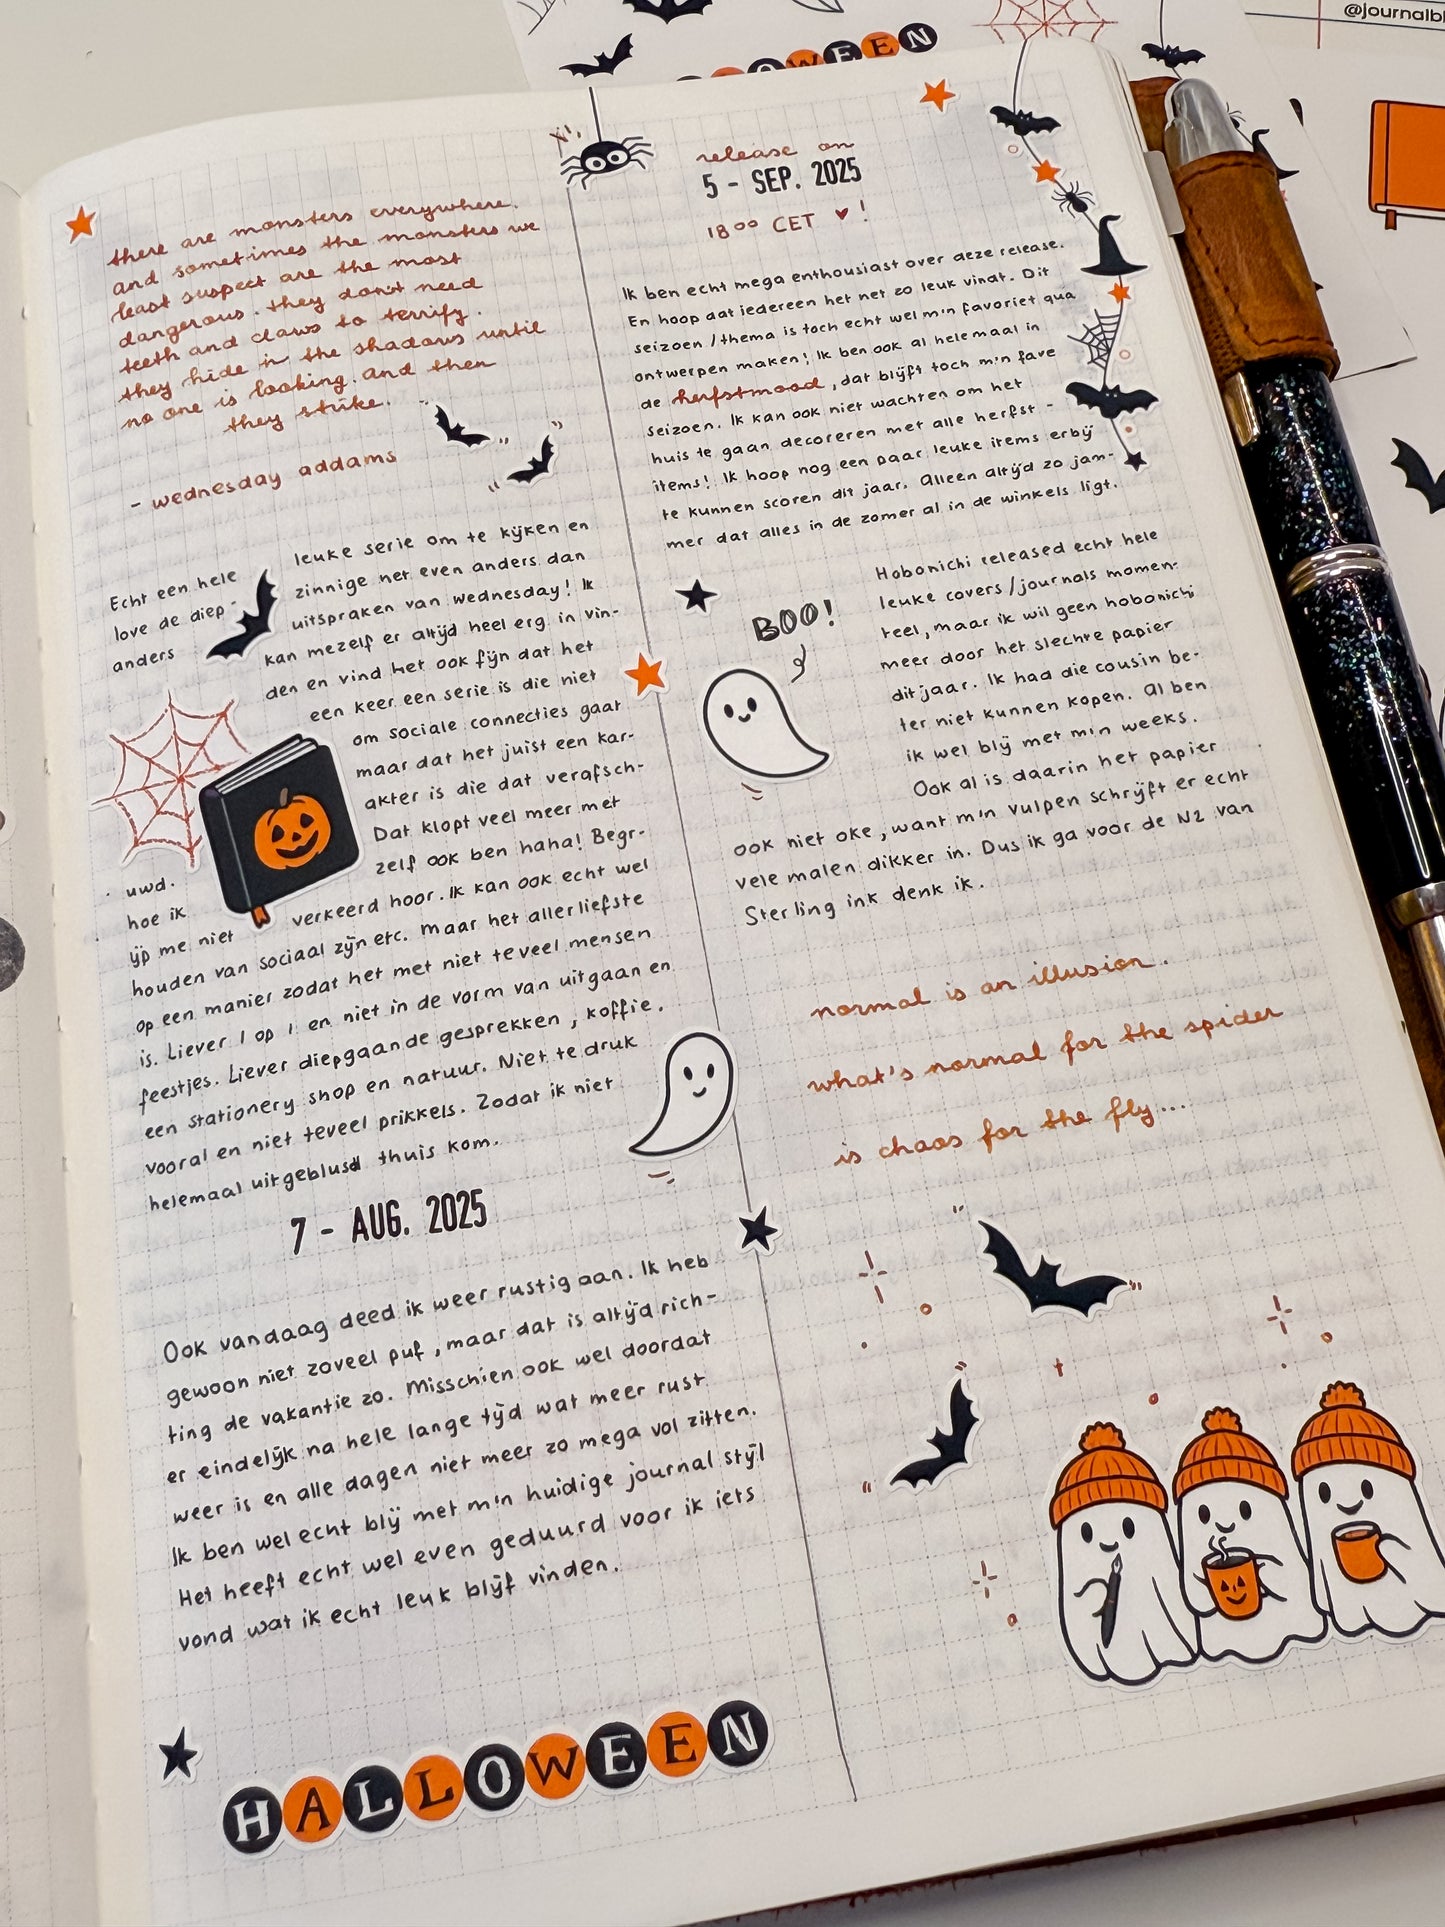 @journalbl
LOWEEN
there are monsters everywhere.
and sometimes the monsters we
least suspect are the most
dangerous. they don't need
teeth and claws to terrify.
they hide in the shadows until
no one is looking. and then
they strike.
- wednesday addams
Echt een hele leuke serie om te kijken en
love de diep- zinnige net even anders dan
anders uitspraken van wednesday! Ik
kan mezelf er altijd heel erg in vin-
den en vind het ook fijn dat het
een keer een serie is die niet
om sociale connecties gaat
maar dat het juist een kar-
akter is die dat verafsch-
uwd. Dat klopt veel meer met
hoe ik zelf ook ben haha! Begr-
ijp me niet verkeerd hoor. Ik kan ook echt wel
houden van sociaal zijn etc. Maar het allerliefste
op een manier zodat het met niet teveel mensen
is. Liever 1 op 1 en niet in de vorm van uitgaan en
feestjes. Liever diepgaande gesprekken, koffie,
een stationery shop en natuur. Niet te druk
vooral en niet teveel prikkels. Zodat ik niet
helemaal uitgeblusd thuis kom.
7 - AUG. 2025
Ook vandaag deed ik weer rustig aan. Ik heb
gewoon niet zoveel puf, maar dat is altijd rich-
ting de vakantie zo. Misschien ook wel doordat
er eindelijk na hele lange tijd wat meer rust
weer is en alle dagen niet meer zo mega vol zitten.
Ik ben wel echt blij met m'n huidige journal stijl
Het heeft echt wel even geduurd voor ik iets
vond wat ik echt leuk blijf vinden.
HALLOWEEN
release on
5 - SEP. 2025
18⁰⁰ CET ♥!
Ik ben echt mega enthousiast over deze release.
En hoop dat iedereen het net zo leuk vindt. Dit
seizoen/thema is toch echt wel m'n favoriet qua
ontwerpen maken! Ik ben ook al helemaal in
de herfstmood, dat blijft toch m'n fave
seizoen. Ik kan ook niet wachten om het
huis te gaan decoreren met alle herfst-
items! Ik hoop nog een paar leuke items erbij
te kunnen scoren dit jaar. Alleen altijd zo jam-
mer dat alles in de zomer al in de winkels ligt.
BOO!
Hobonichi released echt hele
leuke covers/journals momen-
teel, maar ik wil geen hobonichi
meer door het slechte papier
dit jaar. Ik had die cousin be-
ter niet kunnen kopen. Al ben
ik wel blij met m'n weeks.
Ook al is daarin het papier
ook niet oke, want m'n vulpen schrijft er echt
vele malen dikker in. Dus ik ga voor de N2 van
Sterling ink denk ik.
normal is an illusion.
what's normal for the spider
is chaos for the fly...